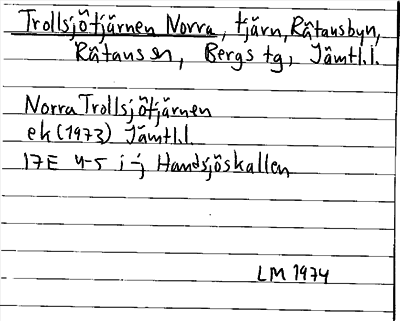 Trollsjötjärnen Norra, tjärn, Råtansbyn,
Råtans sn, Bergs tg, Jämtl.l.
Norra Trollsjötjärnen
ek (1973) Jämtl.l.
17E 4-5 i-j Handsjöskallen
LM 1974